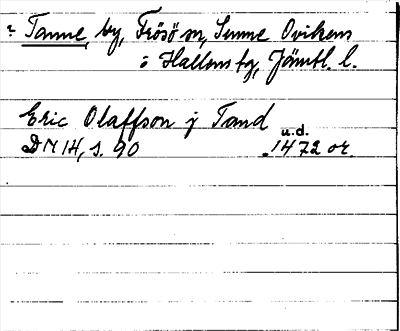 = Tanne, by, Frösö sn, Sunne Ovikens
o Hallens tg, Jämtl. l.
Eric Olaffson j Tand
u.d.
DN 14, s. 90 1472 or.